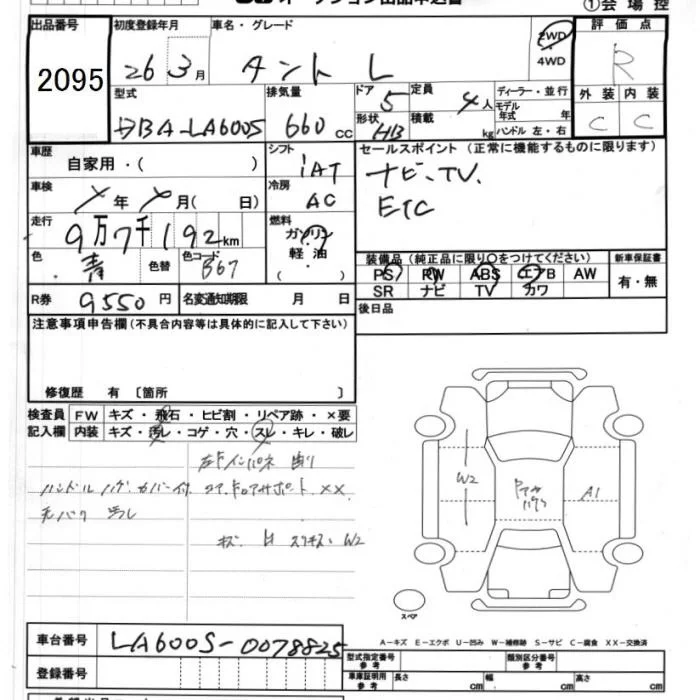 ①会場控
出品番号 初度登録年月 車名・グレード 評価点
2095 26 3月 タント L 2WD R
・4WD
型式 排気量 ドア 定員 ディーラー・並行 外装 内装
DBA-LA600S 660cc 5 4人 モデル年式 年 C C
形状 HB 積載 kg ハンドル 左・右
車歴 自家用・( ) シフト IAT セールスポイント (正常に機能するものに限ります)
車検 年 月( 日) 冷房 AC ナビ、TV.
走行 9万7千192km 燃料 ガソリン ETC
色 青 色替 色コード B67 軽油 ( ) 装備品 (純正品に限り○をつけてください) 新車保証書
PS PW ABS エアB AW 有・無
R券 9550円 名変通知期限 月 日 SR ナビ TV カワ
注意事項申告欄(不具合内容等は具体的に記入して下さい) 後日品
修復歴 有 〔箇所 〕
検査員 FW キズ・飛石・ヒビ割・リペア跡・×要
記入欄 内装 キズ・汚レ・コゲ・穴・スレ・キレ・破レ
ハンドル
××
キズ W2
W2 A1
スペア
A-キズ E-エクボ U-凹み W-補修跡 S-サビ C-腐食 XX-交換済
車台番号 LA600S-0078825
型式指定番号 参考 類別区分番号 参考
登録番号 車庫証明用 参考 長さ cm 幅 cm 高さ cm